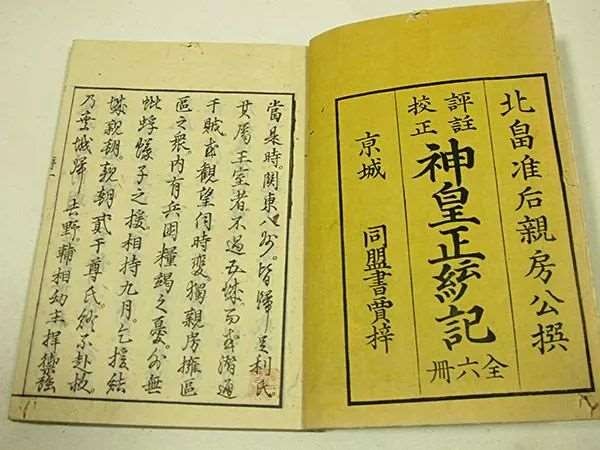 北畠准后親房公撰
評註
校正
神皇正統記
全六冊
京城
同盟書賈梓
當是時。關東八州。皆歸足利氏
其屬王室者不過五城而或潛通
于賊或觀望伺時變。獨親房擁區
區之衆。内有兵困糧竭之憂。外無
蚍蜉蟻子之援相持九月。乞援結
城親朝。親朝貳于尊氏。終不赴救
乃棄城歸吉野輔相幼主捍禦強